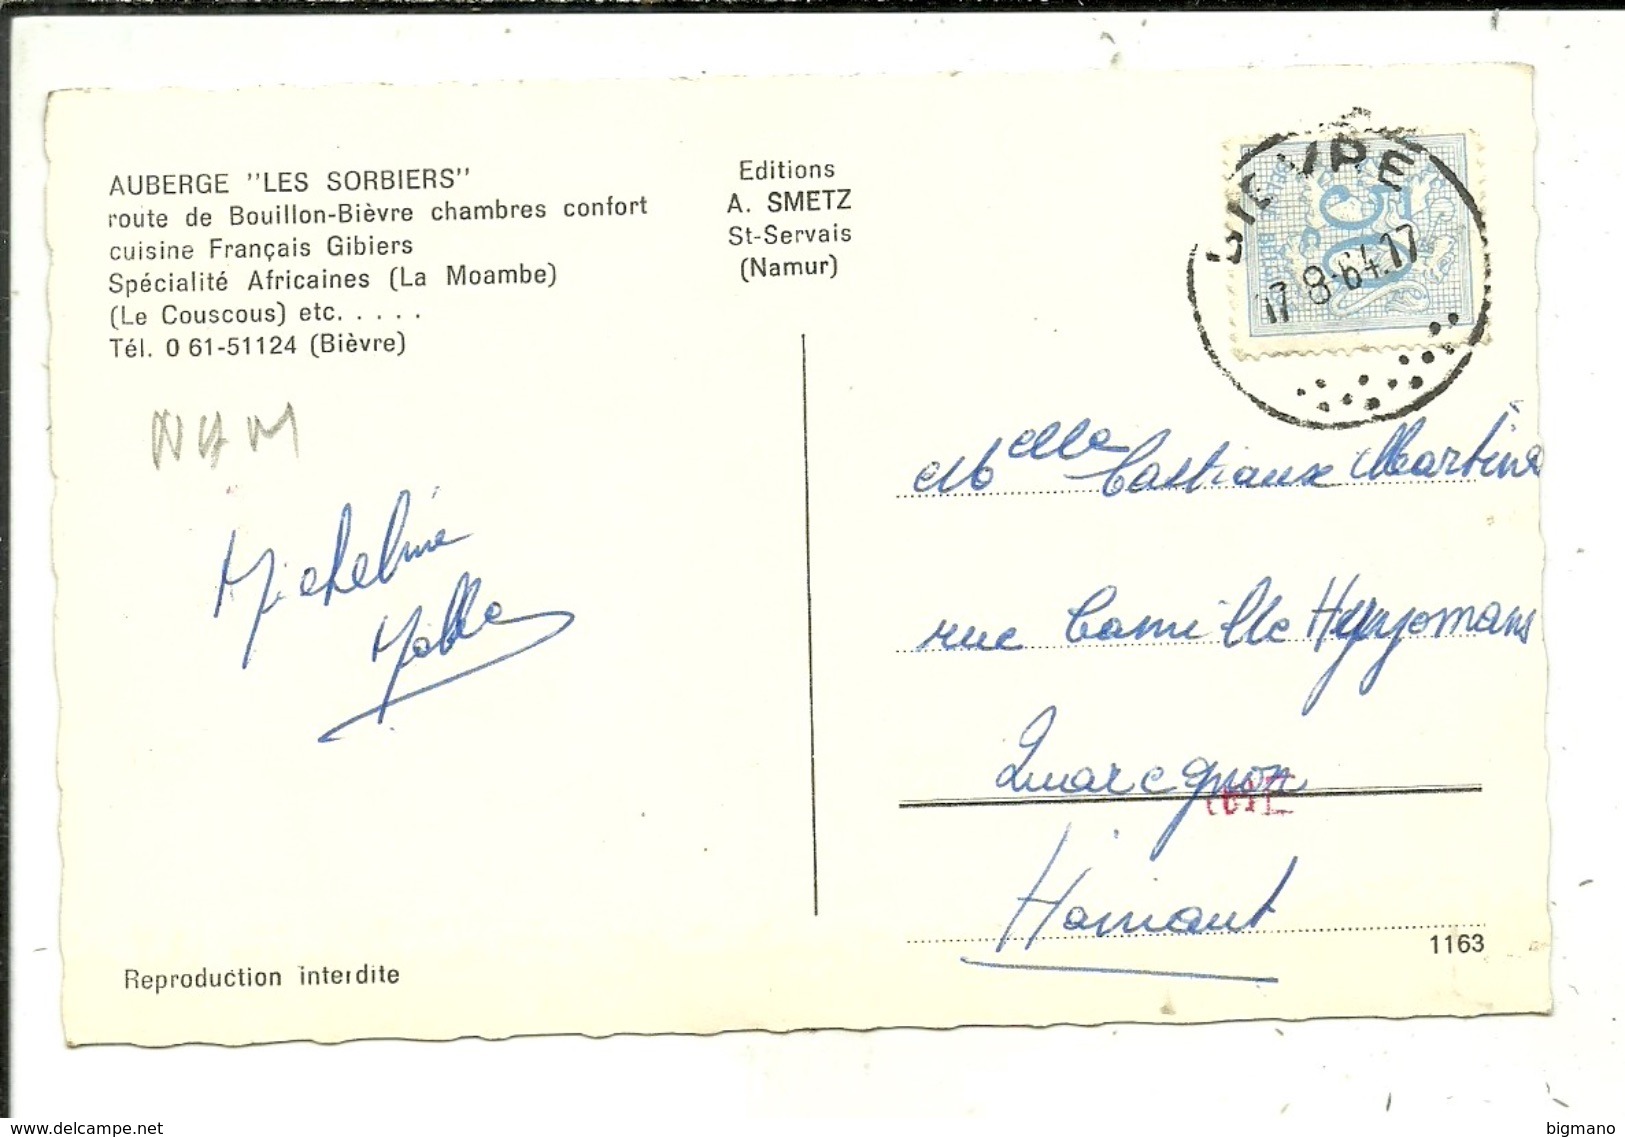 AUBERGE "LES SORBIERS"
route de Bouillon-Bièvre chambres confort
cuisine Français Gibiers
Spécialité Africaines (La Moambe)
(Le Couscous) etc. . . . .
Tél. 0 61-51124 (Bièvre)
NAM
Micheline
Reproduction interdite
Editions
A. SMETZ
St-Servais
(Namur)
BIEVRE
17-8-64.17
50
Melle Castiaux Martine
rue Camille
Quaregnon
Hainaut
1163
www.delcampe.net
bigmano